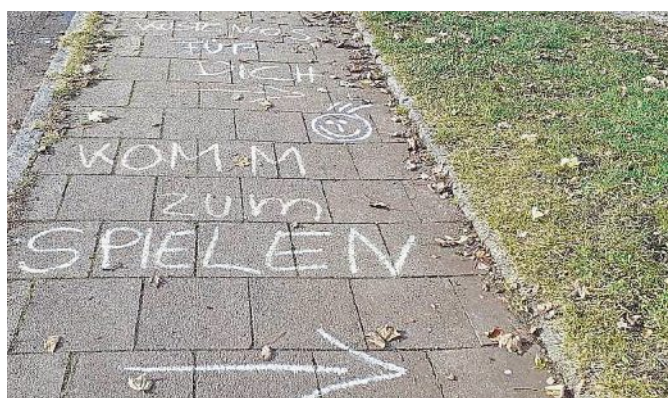 FÜR
DICH
KOMM
zum
SPIELEN